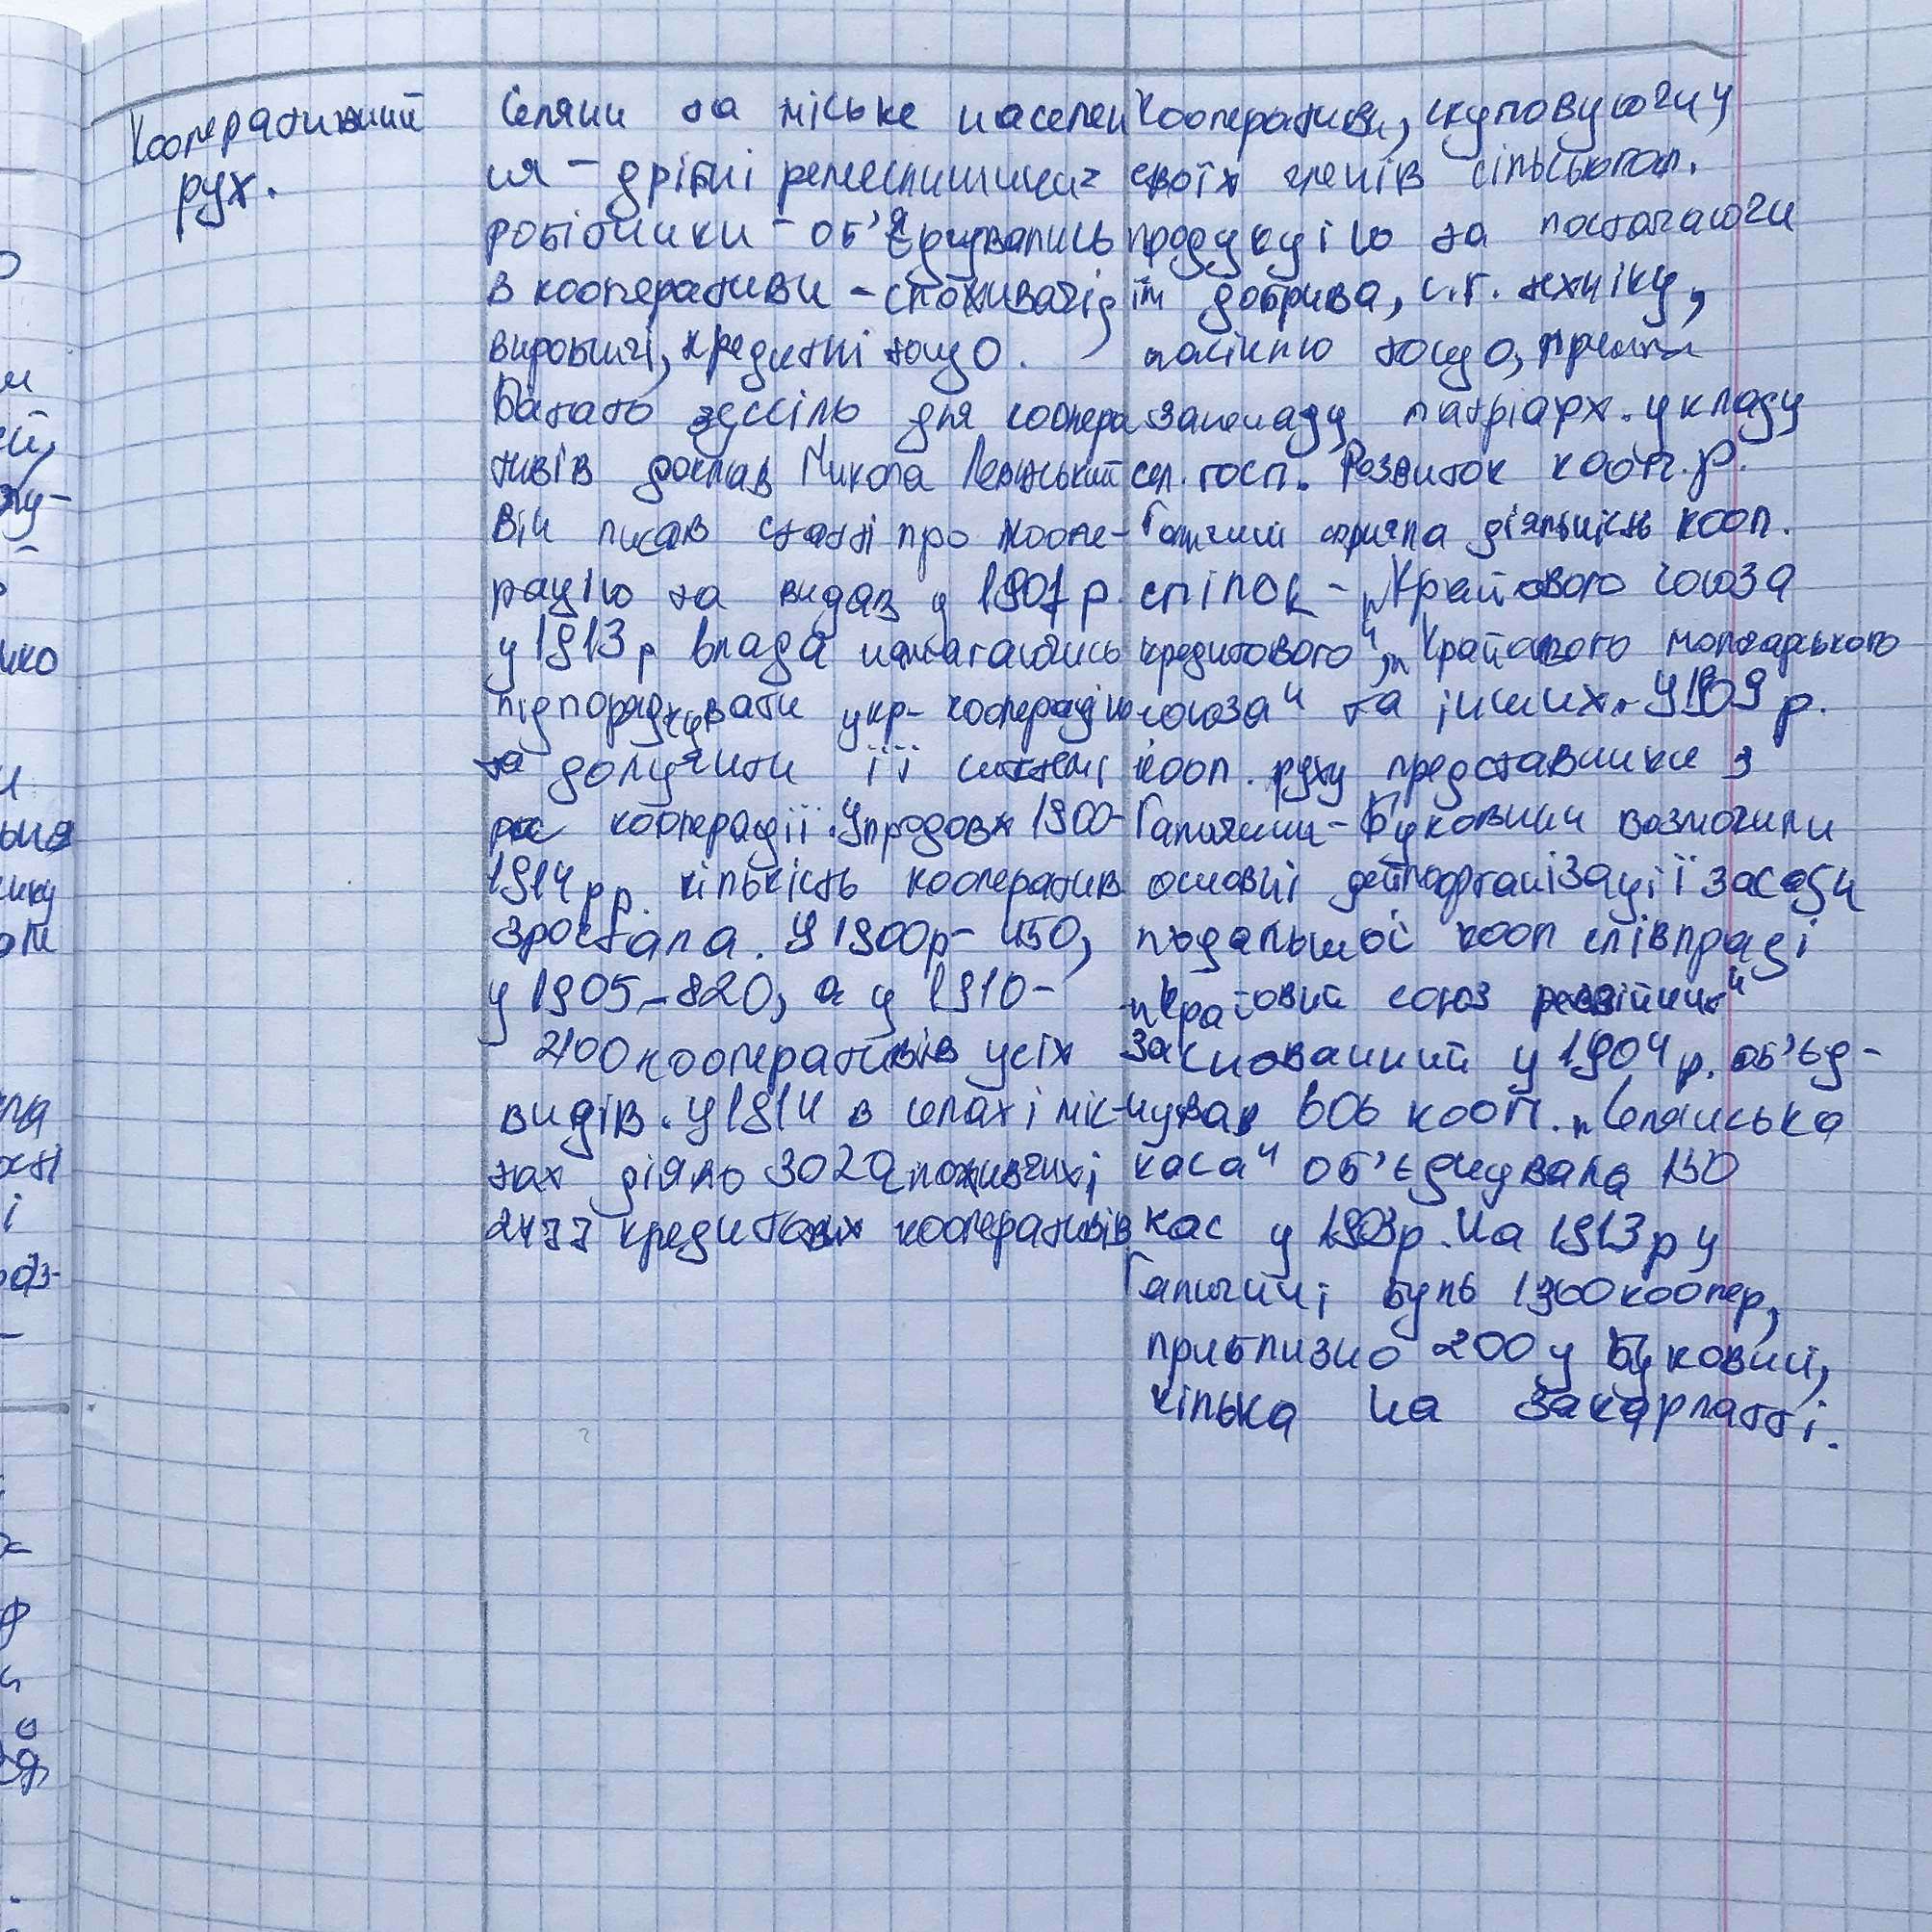 Кооперативний
рух.
Селяни та міське населен
ня - дрібні ремеслиники
робітники - об'єднувались
в кооперативи - споживчі,
виробничі, кредитні тощо.
Багато зусіль для коопера
тивів доклав Микола Левитський
Він писав статті про коопе-
рацію та видав у 1907 р.
у 1913 р влада намагаючись
підпорядкувати укр. кооперацію
та долучити її системі
рос кооперації. Упродовж 1900-
1914 рр. кількість кооператив
зростала. У 1900р - 450,
у 1905 - 820, а у 1910 -
2100 кооперативів усіх
видів. У 1914 в селах і міс-
тах діяло 3020 споживчих і
2477 кредитових кооперативів
Кооперативи, скуповуючи у
своїх членів сільськогосп.
продукцію та постачаючи
їм добрива, с.г. техніку,
насіння тощо,
занепаду патріарх. укладу
сел. госп. Розвиток кооп. р.
Галичини сприяла діяльність кооп.
спілок - „Крайового союза
кредитового", „Крайового молочарського
союза" та інших. У 1909 р.
кооп. руху представники з
Галичини - Буковини
основні засади
подальшої кооп співпраці
„Крайовий союз ревізійний"
заснований у 1904 р. об'єд-
нував 606 кооп. „Селянська
каса" об'єднувала 150
кас у 1903р. На 1913 р у
Галичині було 1300 коопер,
приблизно 200 у Буковині,
кілька на Закарпатті.